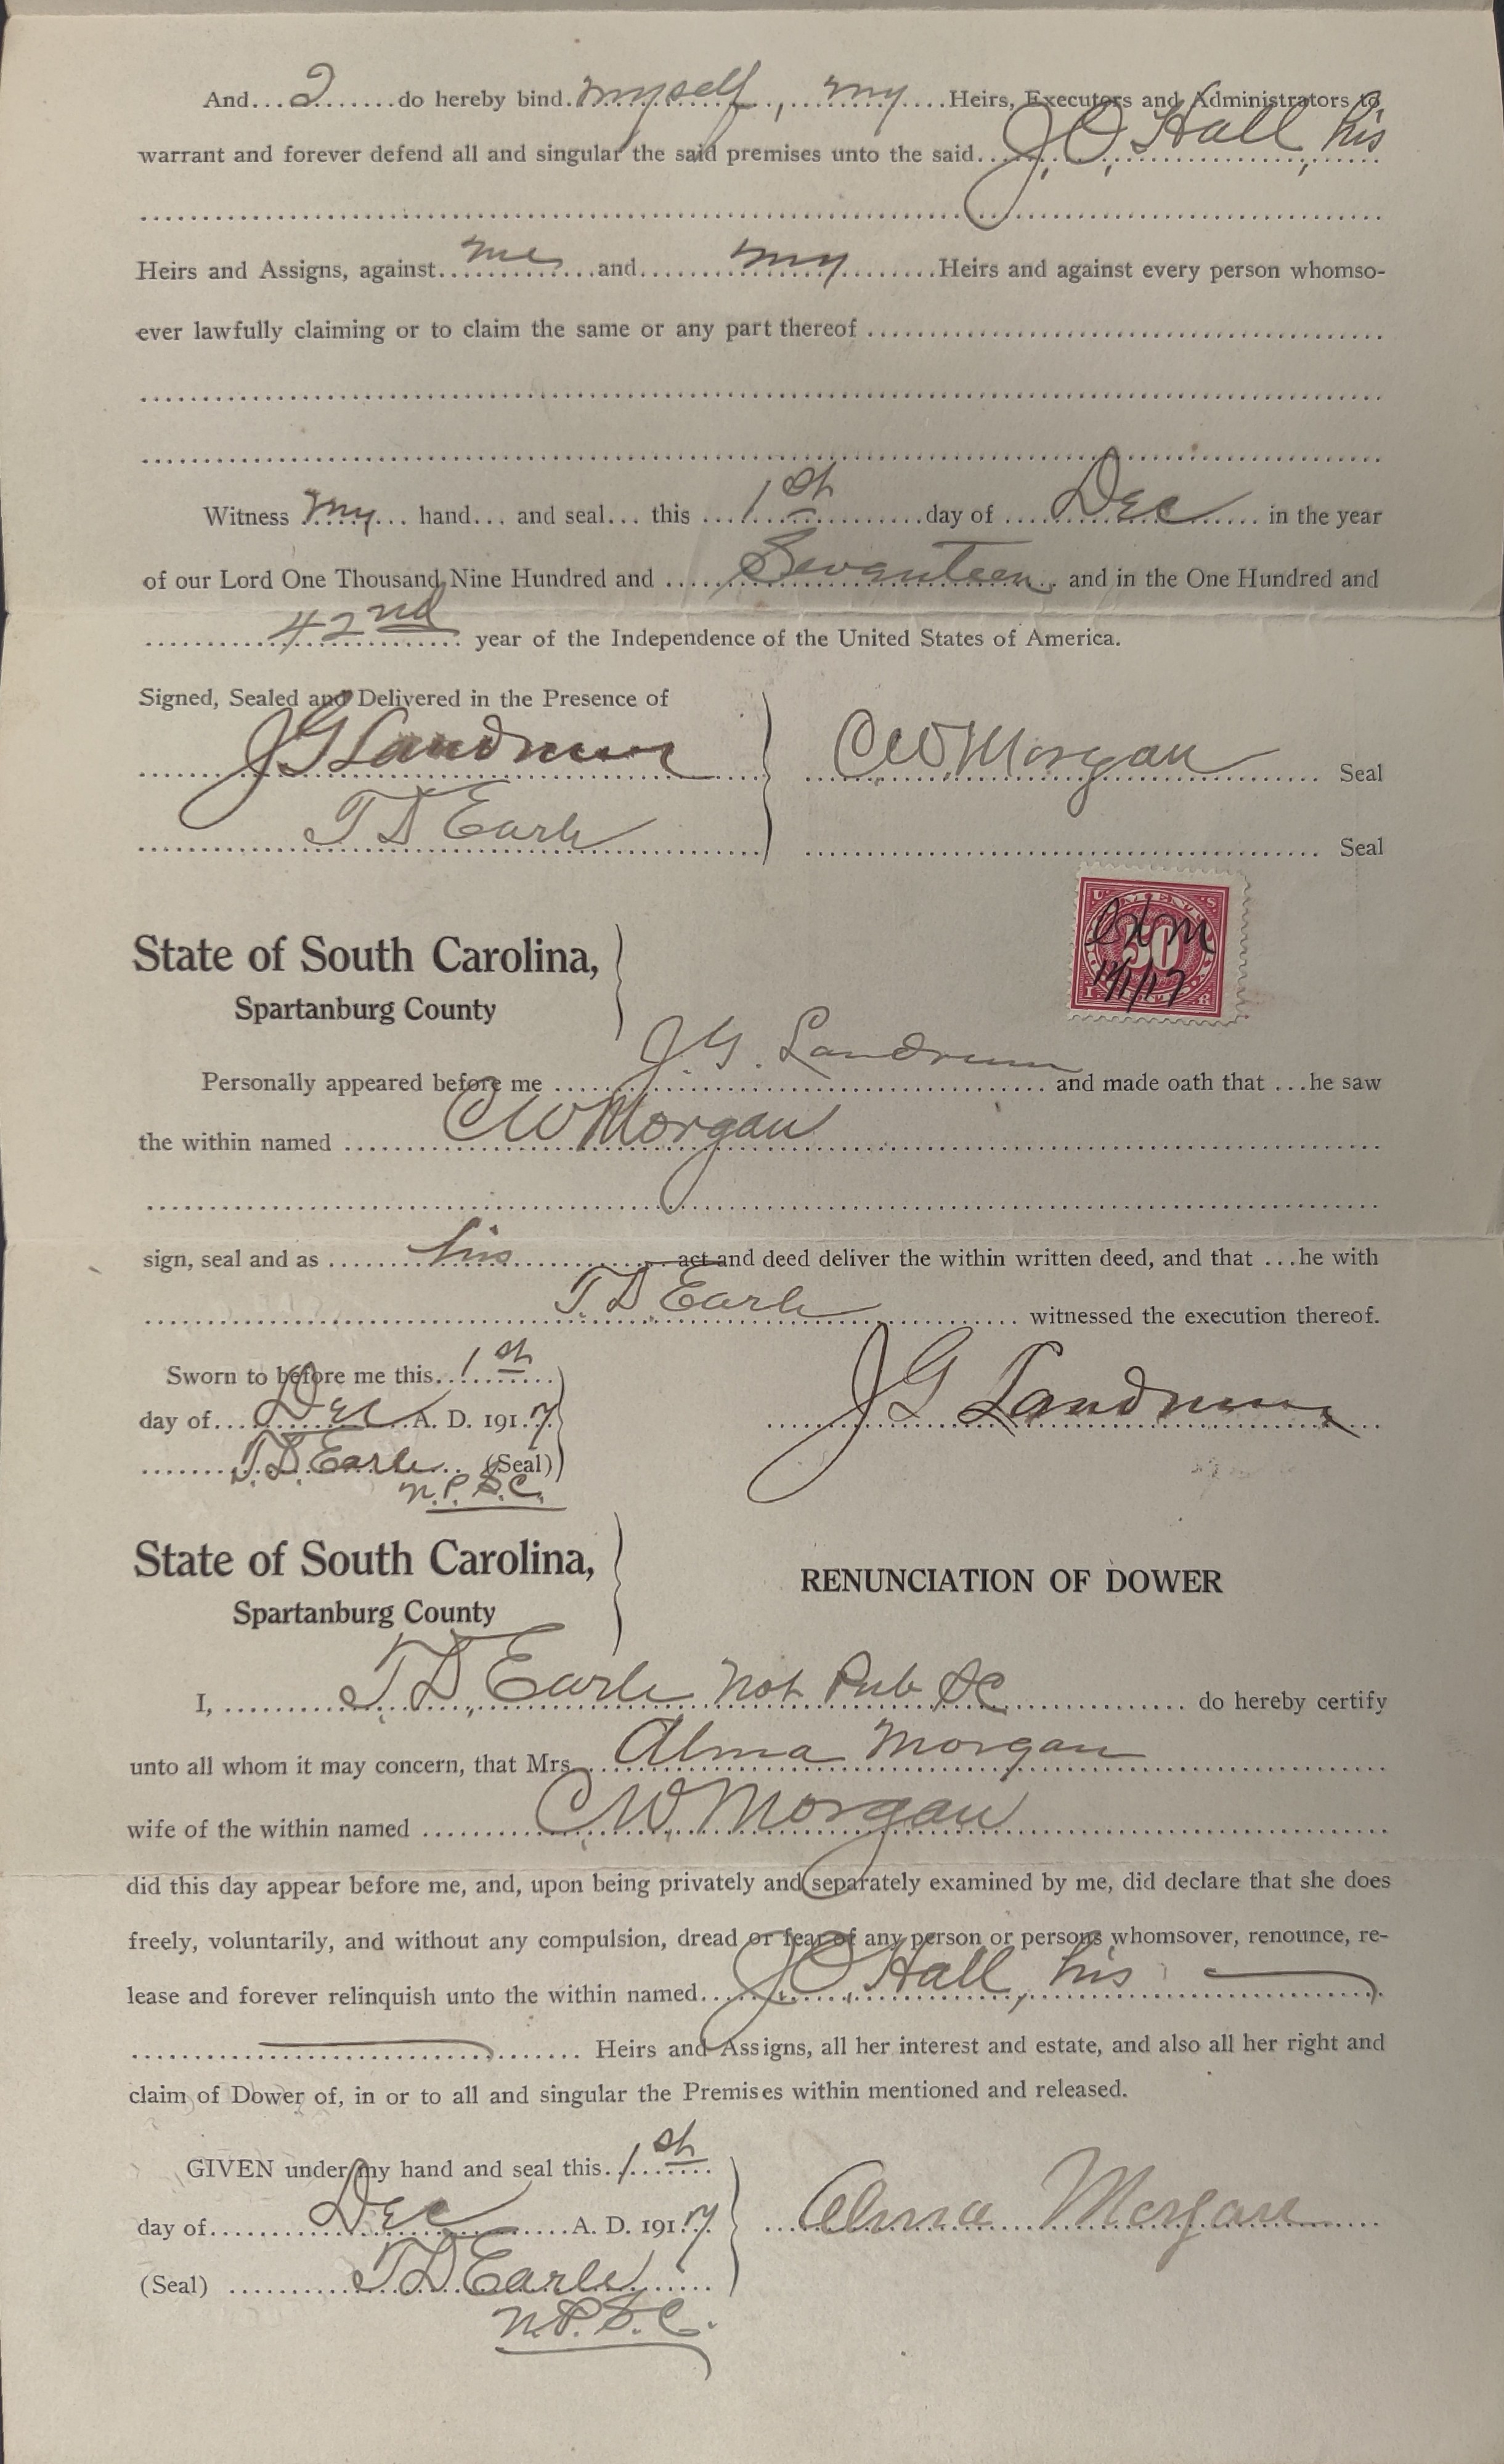 And...I.......do hereby bind.myself, my....Heirs, Executors and Administrators to
warrant and forever defend all and singular the said premises unto the said...J. O. Hall, his
Heirs and Assigns, against...me...and...my...Heirs and against every person whomso-
ever lawfully claiming or to claim the same or any part thereof
Witness my... hand... and seal... this ...1st...day of ...Dec... in the year
of our Lord One Thousand Nine Hundred and ...Seventeen... and in the One Hundred and
...42nd... year of the Independence of the United States of America.
Signed, Sealed and Delivered in the Presence of
J G Landrum
C W Morgan ... Seal
T D Earle
Seal
U. S.
30
CWM
12/1/17
I R
State of South Carolina,
Spartanburg County
Personally appeared before me ...J. G. Landrum... and made oath that ...he saw
the within named ...C W Morgan
sign, seal and as ...his... act and deed deliver the within written deed, and that ...he with
T. D. Earle... witnessed the execution thereof.
Sworn to before me this...1st
day of...Dec...A. D. 1917
T. D. Earle.. (Seal)
N. P. S. C.
J G Landrum
State of South Carolina,
Spartanburg County
RENUNCIATION OF DOWER
I, ...T. D. Earle Not Pub SC... do hereby certify
unto all whom it may concern, that Mrs...Alma Morgan
wife of the within named ...C W Morgan
did this day appear before me, and, upon being privately and separately examined by me, did declare that she does
freely, voluntarily, and without any compulsion, dread or fear of any person or persons whomsover, renounce, re-
lease and forever relinquish unto the within named...J O Hall, his
Heirs and Assigns, all her interest and estate, and also all her right and
claim of Dower of, in or to all and singular the Premises within mentioned and released.
GIVEN under my hand and seal this...1st
day of...Dec...A. D. 1917
Alma Morgan
(Seal) ...T D Earle
N. P. S. C.